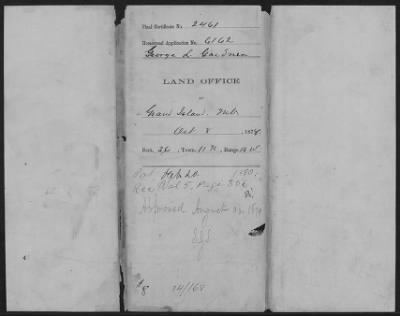 Final Certificate No. 2461
Homestead Application No. 6162
George L. Gardner
LAND OFFICE
Grand Island, Neb
Oct 8, 187
Sect. 20, Town. 11 N, Range 12 W
Pat.
Rec Vol 5, Page 308
Approved August
24/168